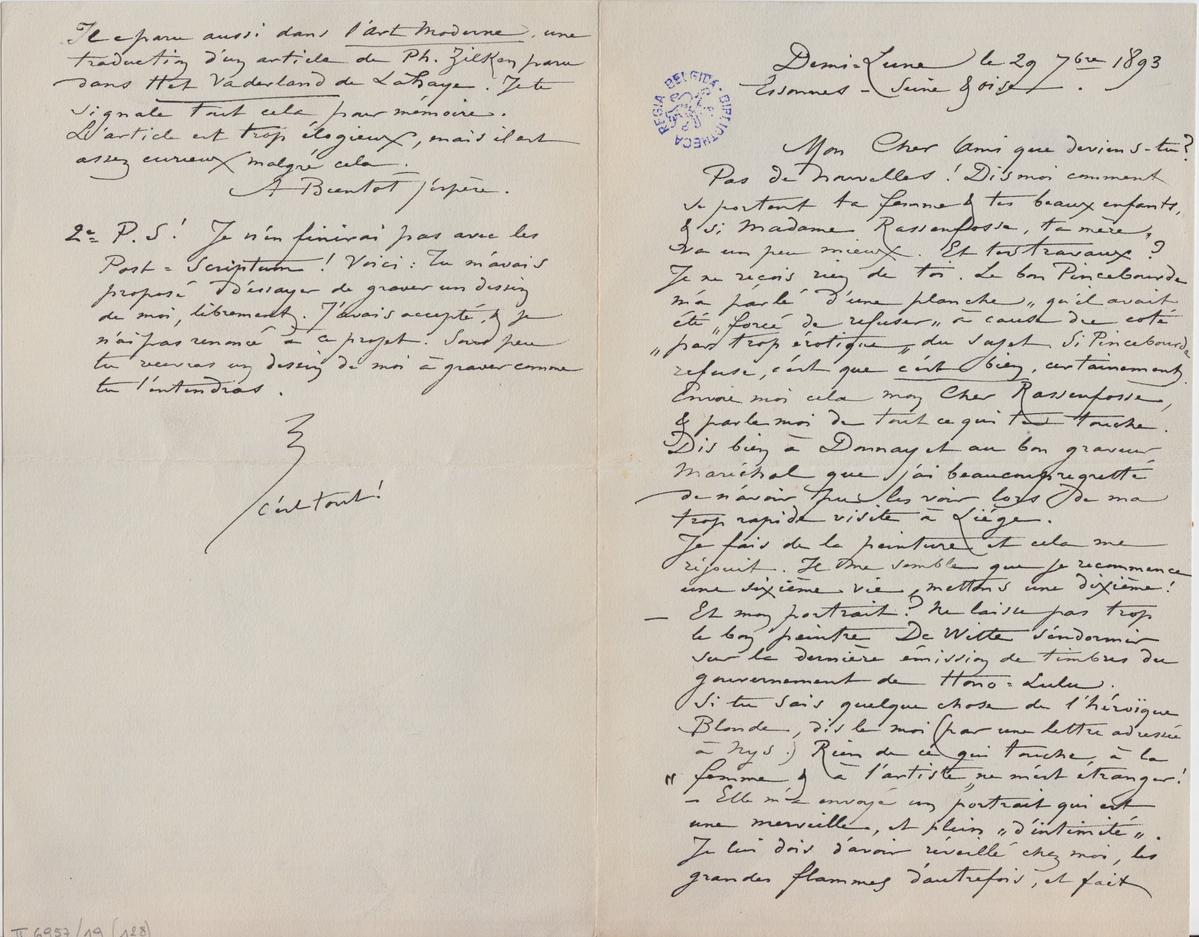 Demi-Lune le 29 7bre 1893
Essonnes - Seine & oise.
REGIA BELGICA BIBLIOTHECA
Mon Cher Ami que deviens-tu?
Pas de nouvelles! Dis moi comment
se portent ta femme & tes beaux enfants,
& si Madame Rassenfosse, ta mère,
va un peu mieux. Et tes travaux?
Je ne reçois rien de toi. Le bon Pincebourde
m'a parlé d'une planche „ qu'il avait
été „ forcé de refuser „ à cause du coté
„ par trop érotique „ du sujet. Si Pincebourde
refuse, c'est que c'est bien, certainement.
Envoie moi cela mon Cher Rassenfosse,
& parle moi de tout ce qui te touche.
Dis bien à Donnay et au bon graveur
Maréchal que j'ai beaucoup regretté
de n'avoir pu les voir lors de ma
trop rapide visite à Liége.
Je fais de la peinture et cela me
réjouit. Il me semble que je recommence
une sixième vie, mettons une dixième!
— Et mon portrait? Ne laisse pas trop
le bon peintre De Witte s'endormir
sur la dernière émission de timbres du
gouvernement de Hono=Lulu.
Si tu sais quelque chose de l'héroïque
Blonde, dis le moi (par une lettre adressée
à Nys.) Rien de ce qui touche à la
„ femme & à l'artiste „ ne m'est étranger!
— Elle m'a envoyé un portrait qui est
une merveille, et plein „ d'intimité „.
Je lui dois d'avoir réveillé chez moi, les
grandes flammes d'autrefois, et fait
Il a paru aussi dans l'art Moderne, une
traduction d'un article de Ph. Zilken paru
dans Het Vaderland de La Haye. Je te
signale tout cela, pour mémoire.
L'article est trop élogieux, mais il est
assez curieux malgré cela.
A Bientôt j'espère.
2e P.S! Je n'en finirai pas avec les
Post=Scriptum! Voici: Tu m'avais
proposé d'essayer de graver un dessin
de moi, librement. J'avais accepté, & je
n'ai pas renoncé à ce projet. Sous peu
tu recevras un dessin de moi à graver comme
tu l'entendras.
c'est tout!
II 6957/19 (128)